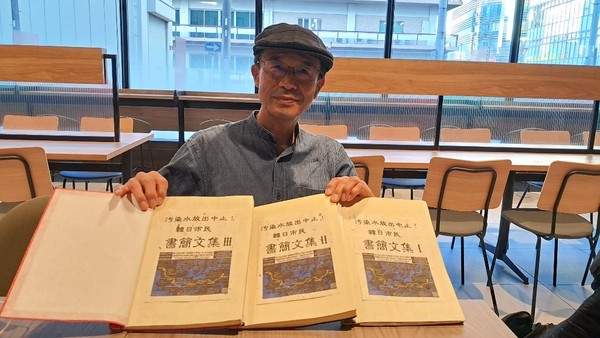 汚染水放出中止!
韓日市民
書簡文集 III
汚染水放出中止!
韓日市民
書簡文集 II
汚染水放出中止!
韓日市民
書簡文集 I